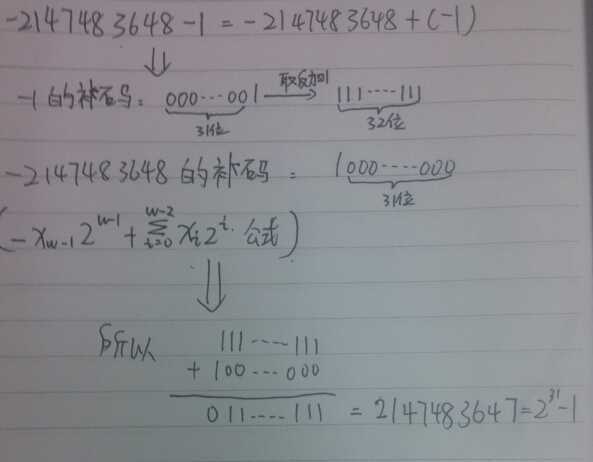 -2147483648-1=-2147483648+(-1)
⇓
-1的补码: 000···001 取反加1→ 111····111
31位 32位
-2147483648的补码: 1000····000
31位
(-x_{w-1}2^{w-1}+∑_{i=0}^{w-2}x_i2^i 公式)
⇓
所以 111····111
+100···000
011····111 =2147483647=2^{31}-1